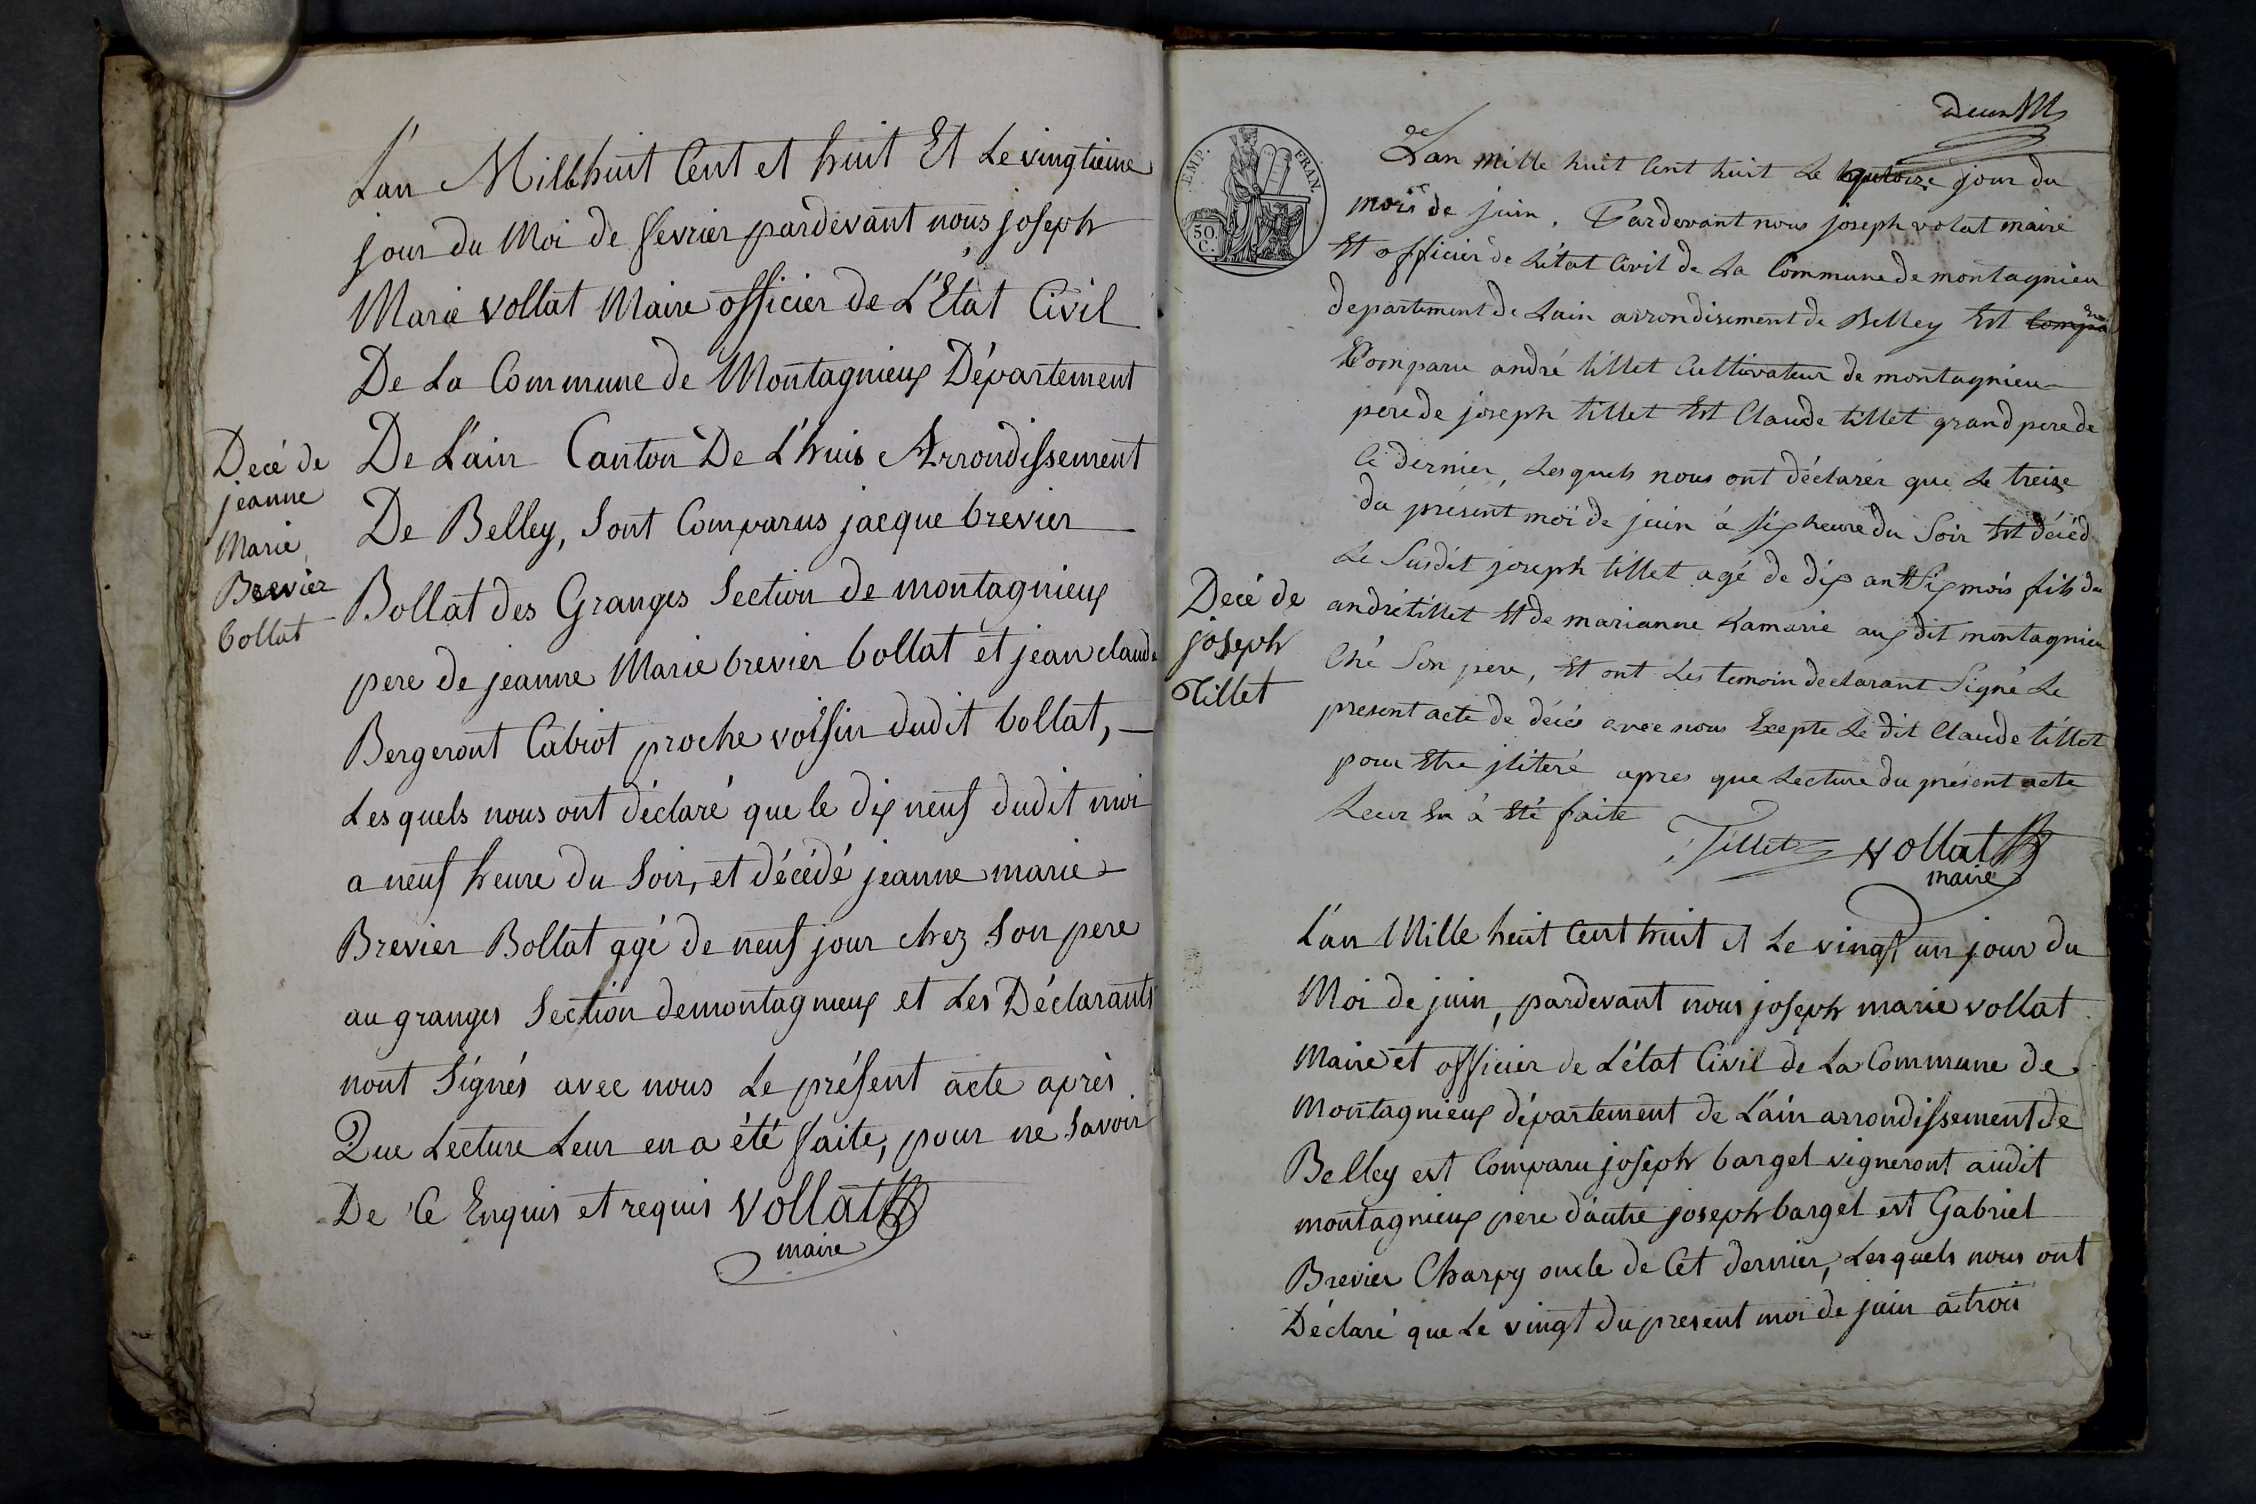 L'an Mil huit Cent et huit Et Le vingtieme
jour du Moi de fevrier pardevant nous joseph
Marie vollat Maire officier de L'Etat Civil
De La Commune de Montagnieux Département
De L'ain Canton De L'huis Arrondissement
De Belley, Sont Comparus jacque brevier
Bollat des Granges Section de montagnieux
pere de jeanne Marie brevier bollat et jean claude
Bergeront Cabiot proche voisin dudit bollat,
Les quels nous ont déclaré que le dix neuf dudit moi
a neuf heure du Soir, et décédé jeanne marie
Brevier Bollat agé de neuf jour chez Son pere
au granges Section de montagnieux et Les Déclarants
nont Signés avec nous Le présent acte après
Que Lecture Leur en a été faite, pour ne Savoir
De Ce Enquis et requis vollat
maire
Decé de
jeanne
Marie
Brevier
bollat
EMP. FRAN.
50.
C.
L'an mille huit Cent huit Le jour du
mois de juin. Pardevant nous joseph volat maire
Et officier de L'état Civil de La Commune de montagnieu
departement de Lain arrondisement de Belley Est
Comparu andré tillet Cultivateur de montagnieu
pere de joseph tillet Est Claude tillet grand pere de
Ce dernier, Lesquels nous ont déclarér que Le treize
du présent moi de juin à six heure du Soir Est décéd
Le Susdit joseph tillet agé de dix ans Six mois fils de
andré tillet Et de marianne Lamarie aux dit montagnieu
Ché Son pere, Et ont Les temoin declarant Signé Le
present acte de décés avec nous Exepte Le dit Claude tillet
pour Etre jliteré apres que Lecture du présent acte
Leur En à Eté faite
Tillet vollat
maire
Decé de
joseph
Tillet
L'an Mille huit Cent huit et Le vingt un jour du
Moi de juin, pardevant nous joseph marie vollat
Maire et officier de L'état Civil de La Commune de
Montagnieux département de L'ain arrondissement de
Belley est Comparu joseph bargel vigneront audit
montagnieux pere d'autre joseph bargel est Gabriel
Brevier Charpy oncle de Cet dernier, Lesquels nous ont
Déclaré que Le vingt du present moi de juin à trois